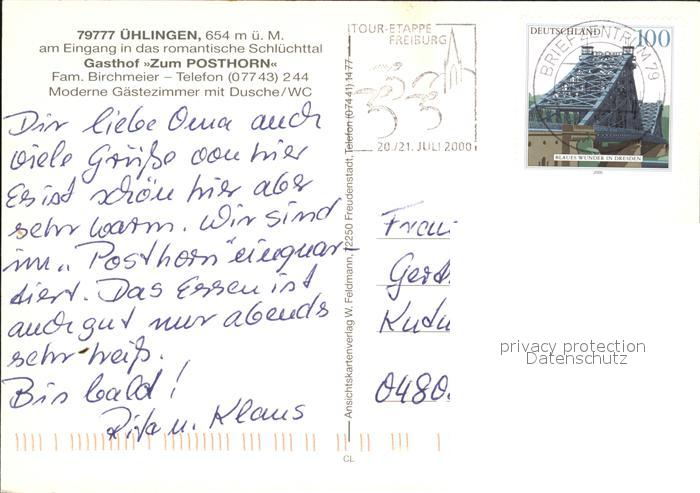 79777 ÜHLINGEN, 654 m ü. M.
am Eingang in das romantische Schlüchttal
Gasthof »Zum POSTHORN«
Fam. Birchmeier – Telefon (0 77 43) 2 44
Moderne Gästezimmer mit Dusche/WC
Dir liebe Oma auch
viele Grüße von hier
Es ist schön hier aber
sehr warm. Wir sind
im „Posthorn“ einquar-
tiert. Das Essen ist
auch gut nur abends
sehr heiß.
Bis bald!
Rita u. Klaus
Ansichtskartenverlag W. Feldmann, 72250 Freudenstadt, Telefon (07441) 1477
CL
TOUR-ETAPPE
FREIBURG
20./21. JULI 2000
BRIEFZENTRUM 79
DEUTSCHLAND 100
BLAUES WUNDER IN DRESDEN
2000
Frau
Gert
Kudu
0480
privacy protection
Datenschutz